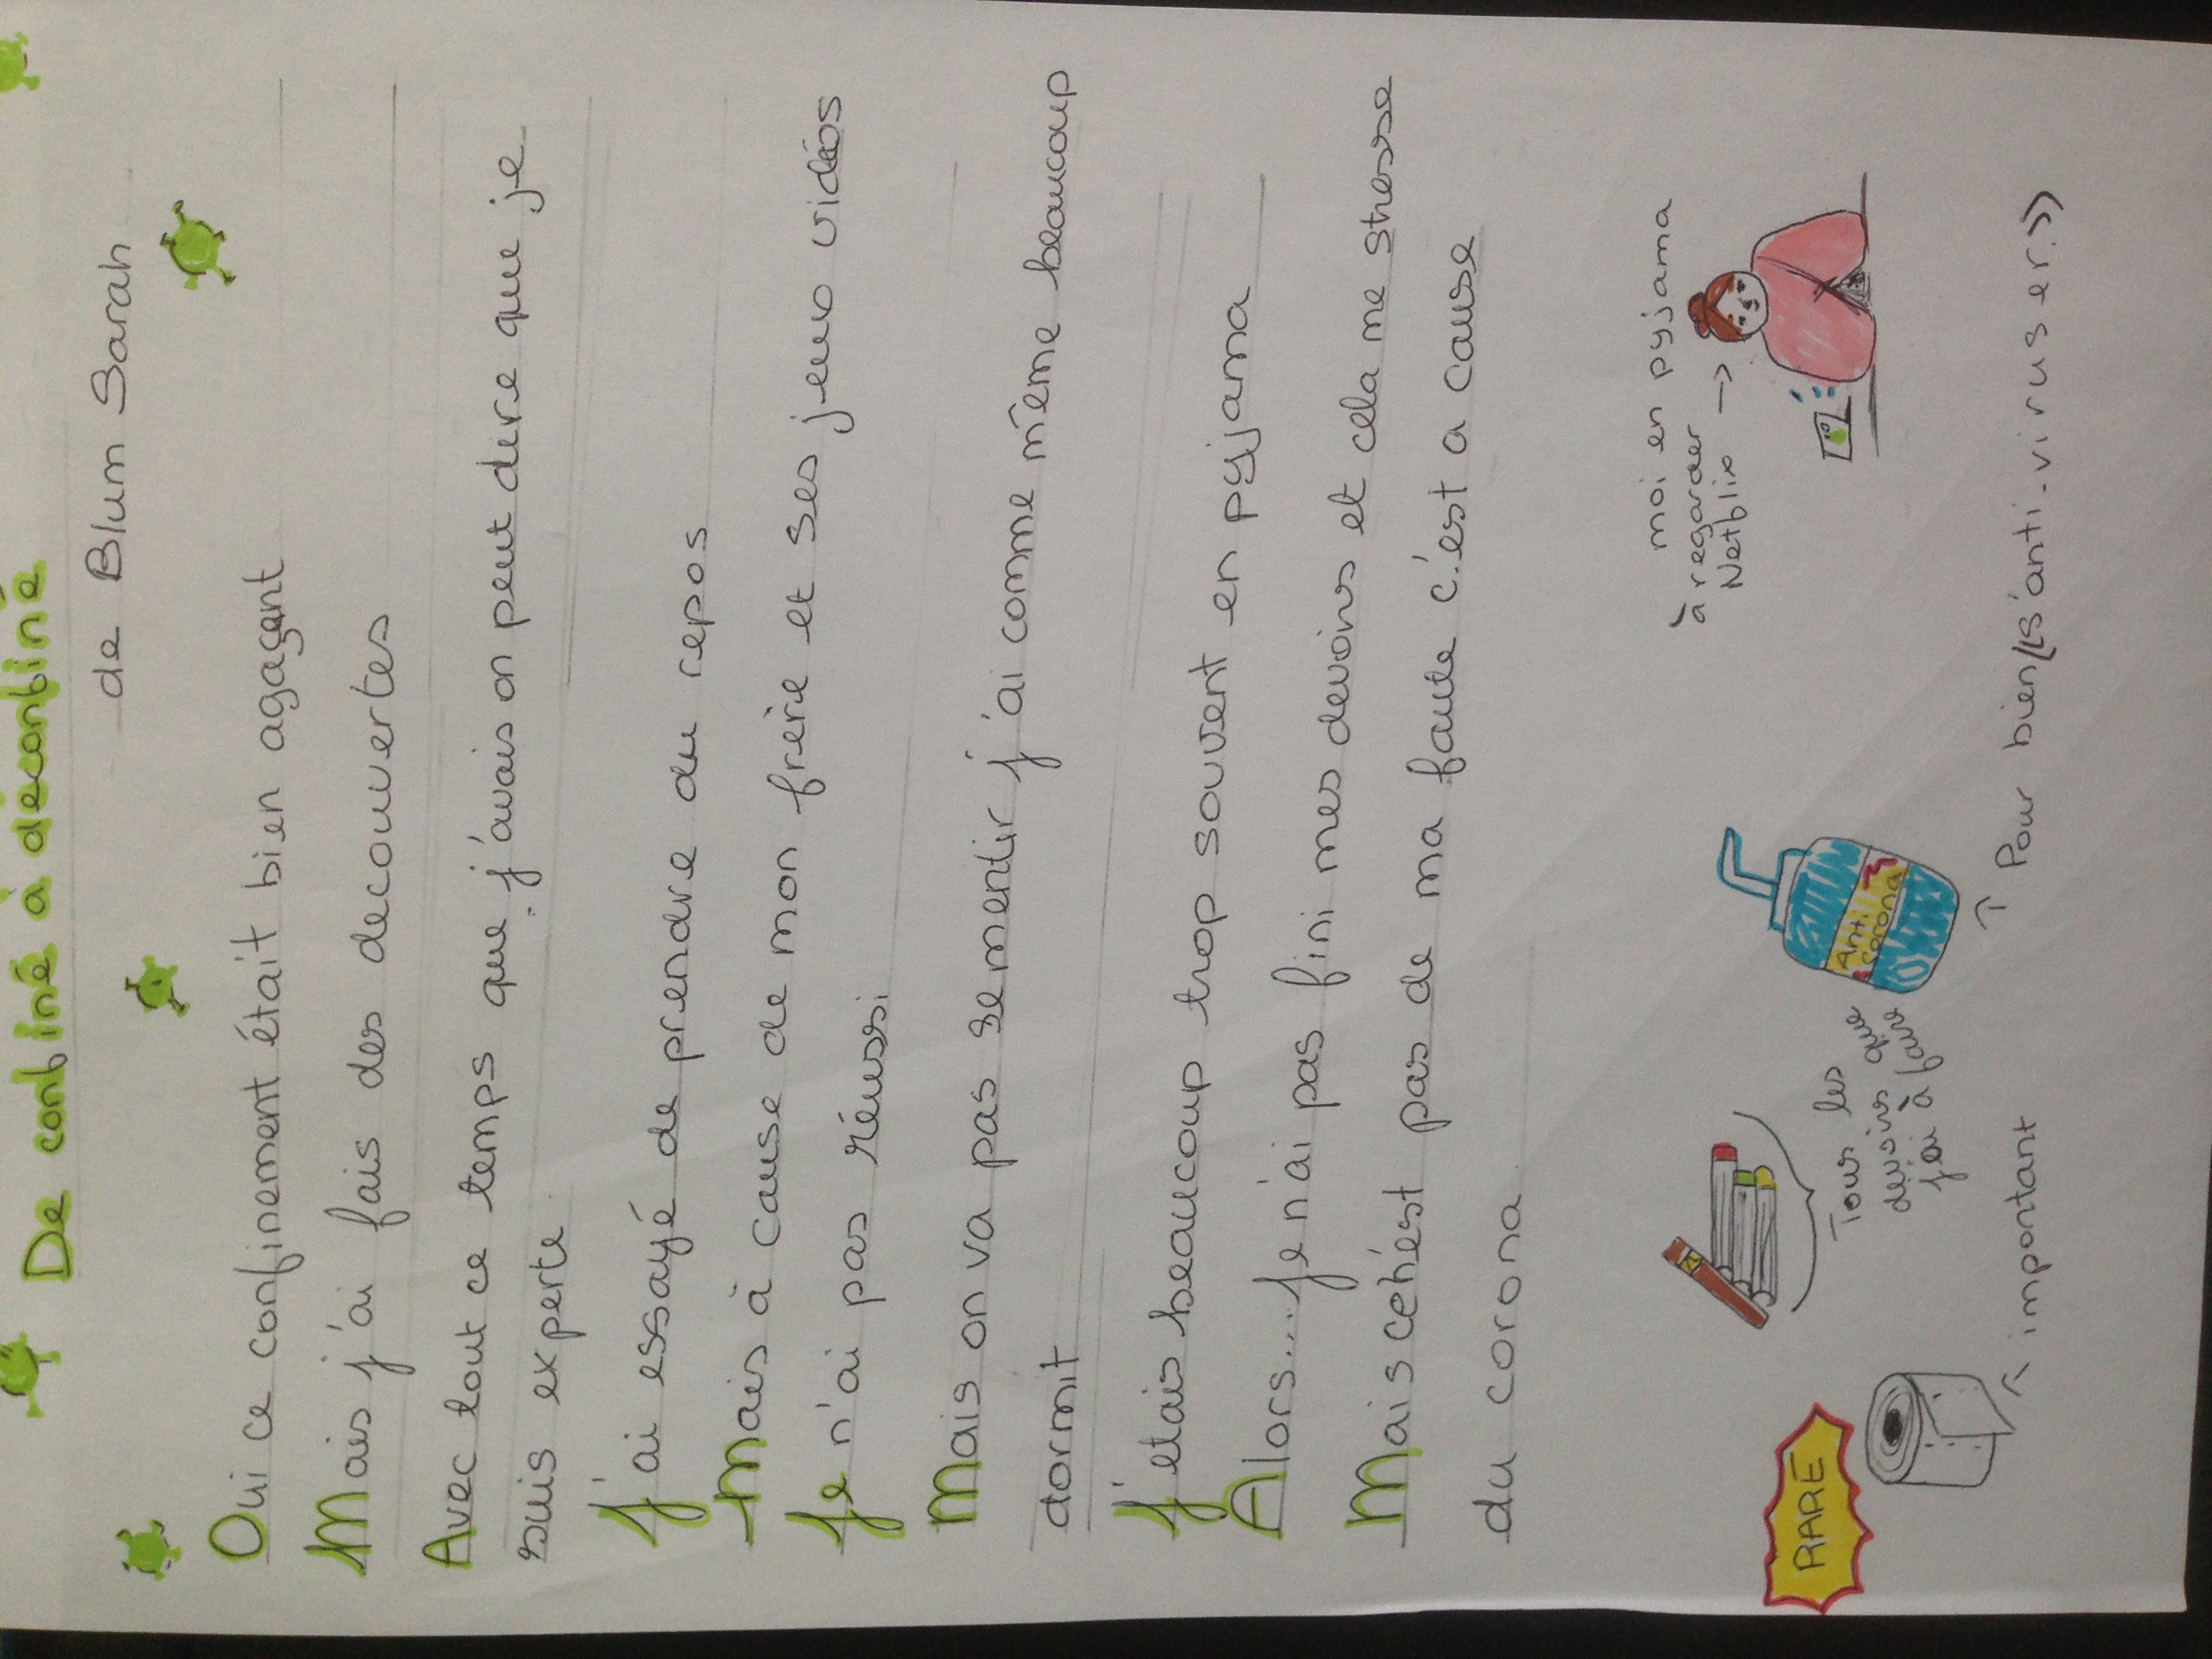 De confiné à déconfiné
de Blum Sarah
Oui ce confinement était bien agaçant
Mais j'ai fais des decouvertes
Avec tout ce temps que j'avais on peut dire que je
suis experte
J'ai essayé de prendre du repos
Mais à cause de mon frère et ses jeux vidéos
Je n'ai pas réussi
Mais on va pas se mentir j'ai comme même beaucoup
dormit
J'etais beaucoup trop souvent en pyjama
Alors.... Je n'ai pas fini mes devoirs et cela me stresse
Mais ce n'est pas de ma faute c'est a cause
du corona
moi en pyjama
à regarder
Netflix →
RARE
important
Tous les
devoirs que
j'ai à faire
Anti
Corona
Pour bien «s'anti-viruser.»